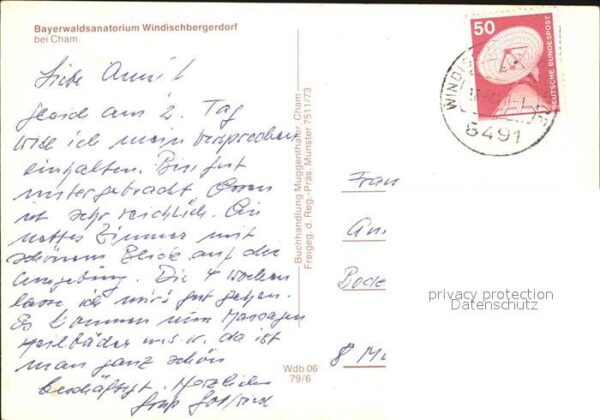 Bayerwaldsanatorium Windischbergerdorf
bei Cham
50
DEUTSCHE BUNDESPOST
WINDIS
8491
Liebe
gleich am 2. Tag
will ich mein Versprechen
einhalten. Bin gut
untergebracht. Essen
ist sehr reichlich. Ein
nettes Zimmer mit
schönem Blick auf die
Umgebung. Die 4 Wochen
lasse ich mir's gut gehen.
Es kommen nun Massagen
Heilbäder u.s.w. da ist
man ganz schön
beschäftigt. Herzlichen
Gruß
Buchhandlung Muggenthaler, Cham
Freigeg. d. Reg.-Präs. Münster 7511/73
Wdb 06
79/6
Frau
Bode
8 Mü
privacy protection
Datenschutz